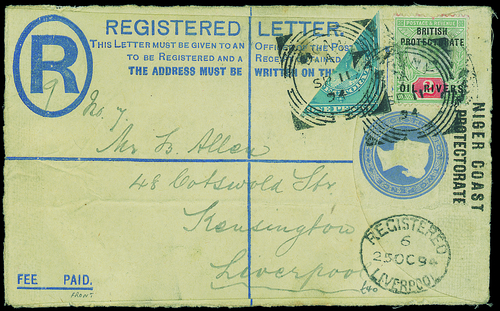 REGISTERED LETTER.
THIS LETTER MUST BE GIVEN TO AN OFFICER OF THE POST
TO BE REGISTERED AND A
THE ADDRESS MUST BE WRITTEN ON TH
R
9
No. 7
Mr. H. Allen
48 Cotswold Str.
Kensington
Liverpool
POSTAGE & REVENUE
BRITISH
PROTECTORATE
OIL RIVERS
NIGER COAST
PROTECTORATE
REGISTERED
6
25 OC 94
LIVERPOOL
FEE PAID.
FRONT